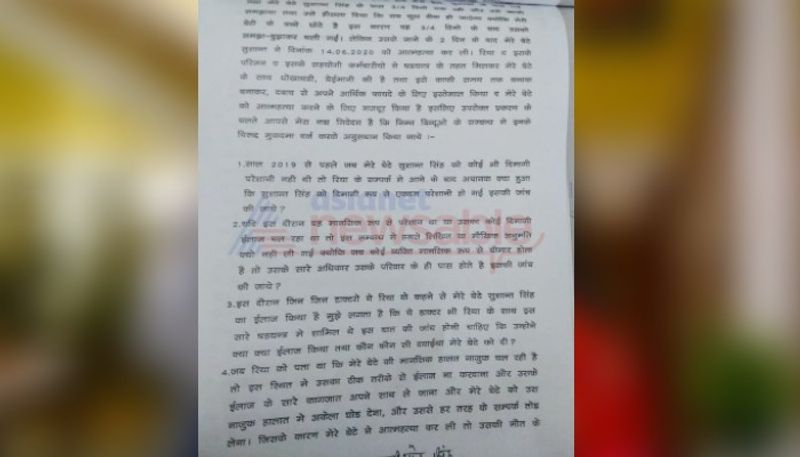 समझाया तथा उसे हौसला दिया कि सब कुछ ठीक हो जायेगा क्योंकि मेरी
बेटी के बच्चे छोटे है इस कारण वह 3/4 दिनो के बाद उसको
समझा-बुझाकर चली गई। लेकिन उसके जाने के 2 दिन के बाद मेरे बेटे
सुशान्त ने दिनांक 14.06.2020 को आत्महत्या कर ली। रिया व इसके
परिजन व इसके सहयोगी कर्मचारीयो ने षडयन्त्र के तहत मिलकर मेरे बेटे
के साथ धोखाधडी, बेईमानी की है तथा इसे काफी समय तक बन्धक
बनाकर, दबाव से अपने आर्थिक फायदे के लिए इस्तेमाल किया व मेरे बेटे
को आत्महत्या करने के लिए मजबूर किया है इसलिए उपरोक्त प्रकरण के
चलते आपसे मेरा नम्र निवेदन है कि निम्न बिन्दूओ के सम्बन्ध मे इनके
विरूद्ध मुकदमा दर्ज करके अनुसंधान किया जाये :-
1.साल 2019 से पहले जब मेरे बेटे सुशान्त सिंह को कोई भी दिमागी
परेशानी नही थी तो रिया के सम्पर्क मे आने के बाद अचानक क्या हुआ
कि सुशान्त सिंह को दिमागी रूप से एकदम परेशानी हो गई इसकी जांच
की जाये ?
asianet
newsable
2.यदि इस दौरान वह मानसिक रूप से परेशान था या उसका कोई दिमागी
ईलाज चल रहा था तो इस सम्बन्ध मे हमसे लिखित या मौखिक अनुमति
क्यो नही ली गई क्योकि जब कोई व्यक्ति मानसिक रूप से बीमार होता
है तो उसके सारे अधिकार उसके परिवार के ही पास होते है इसकी जांच
की जाये ?
3.इस दौरान जिन जिन डाक्टरो ने रिया के कहने से मेरे बेटे सुशान्त सिंह
का ईलाज किया है मुझे लगता है कि ये डाक्टर भी रिया के साथ इस
सारे षडयन्त्र मे शामिल थे इस बात की जांच होनी चाहिए कि उन्होने
क्या क्या ईलाज किया तथा कौन कौन सी दवाईयां मेरे बेटे को दी ?
4.जब रिया को पता था कि मेरे बेटे की मानसिक हालत नाजुक चल रही है
तो इस स्थिति मे उसका ठीक तरीके से ईलाज ना करवाना और उसके
ईलाज के सारे कागजात अपने साथ ले जाना और मेरे बेटे को उस
नाजुक हालात मे अकेला छोड देना, और उससे हर तरह के सम्पर्क तोड
लेना। जिसके कारण मेरे बेटे ने आत्महत्या कर ली तो उसकी मौत के
सिंह